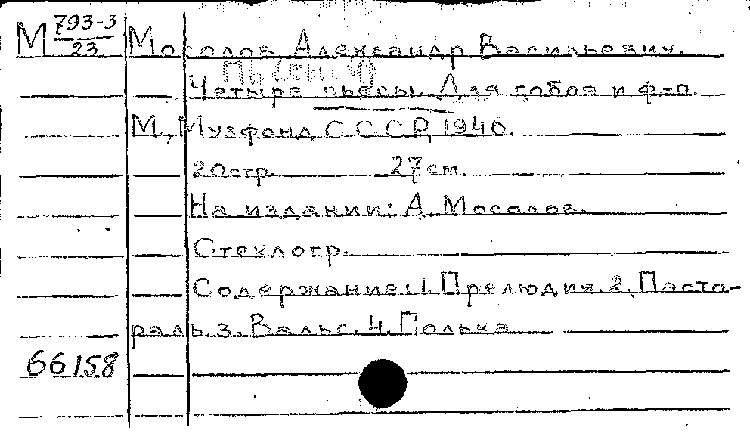 М 793-3/23 Мосолов Александр Васильевич.
Четыре пьесы. Для гобоя и ф-п.
М., Музфонд СССР, 1946.
20стр. 27см.
На издании: А. Мосолов.
Стеклогр.
Содержание: 1. Прелюдия. 2. Паста-
раль. 3. Вальс. 4. Полька
66158